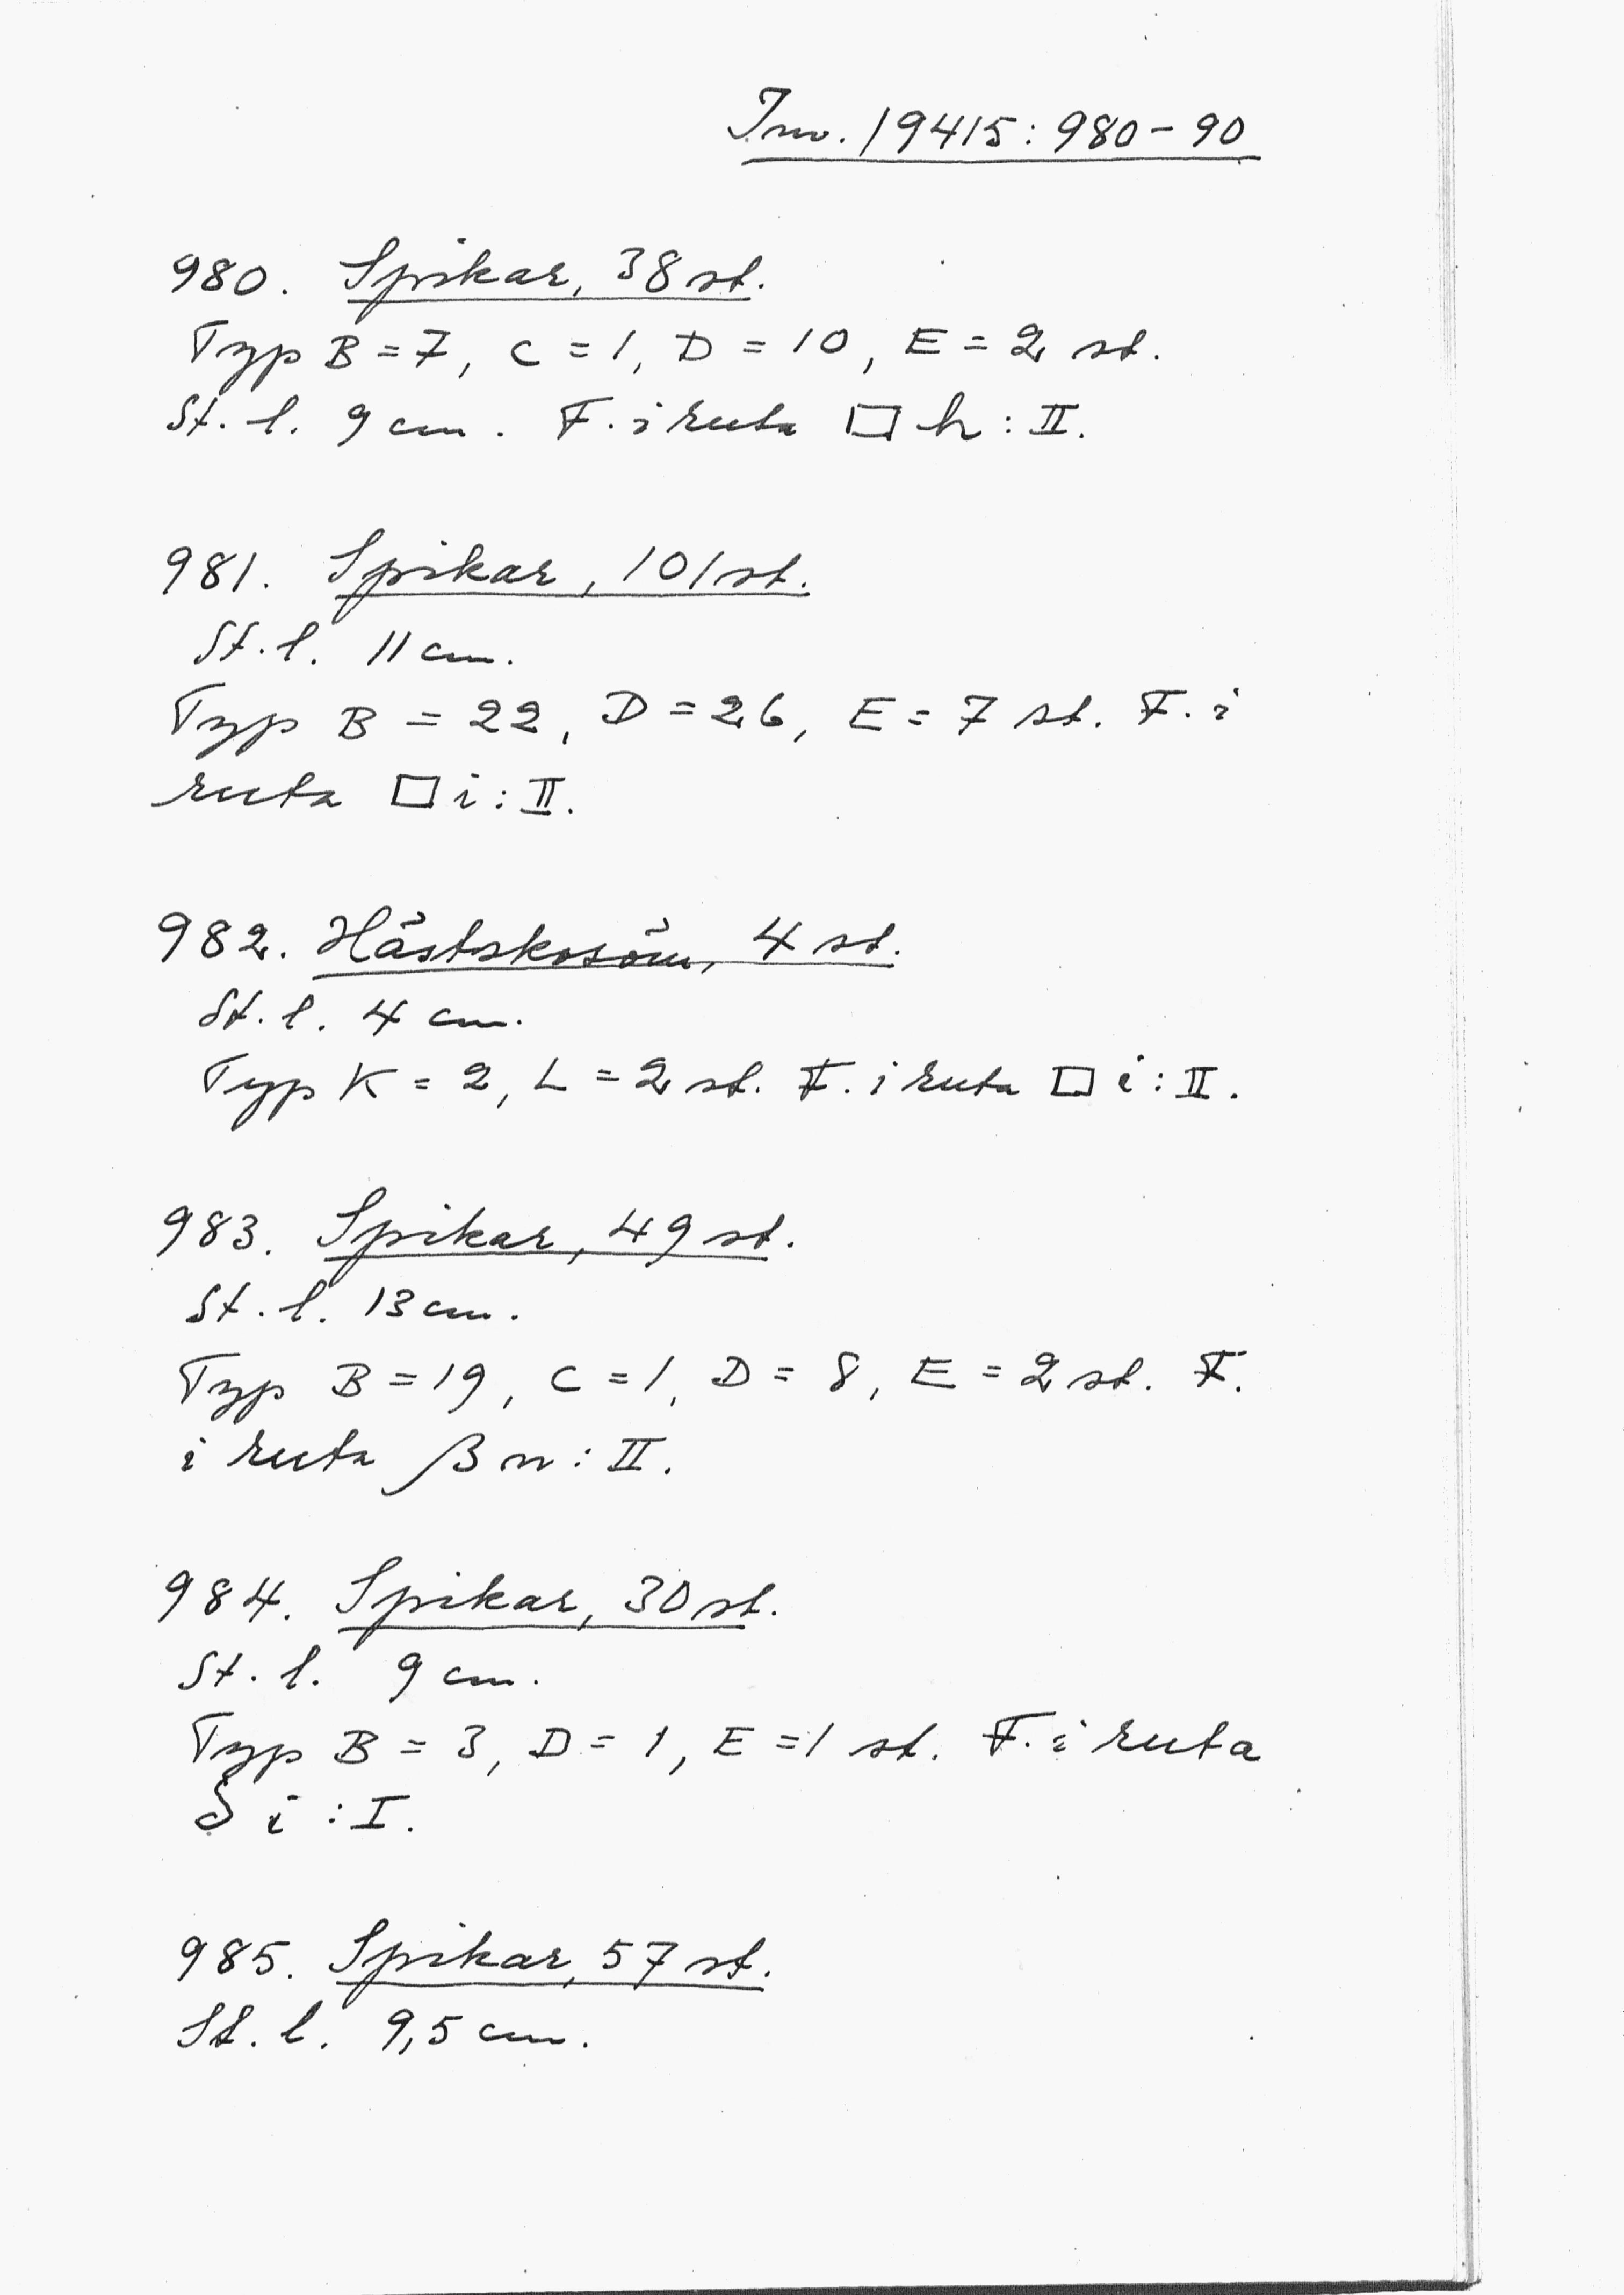 Inv. 19415:980-90
980. Spikar, 38 st.
Typ B = 7, C = 1, D = 10, E = 2 st.
St. l. 9 cm. F. i ruta □ h : II.
981. Spikar, 101 st.
St. l. 11 cm.
Typ B = 22, D = 26, E = 7 st. F. i
ruta □ i : II.
982. Hästskosöm, 4 st.
St. l. 4 cm.
Typ K = 2, L = 2 st. F. i ruta □ i : II.
983. Spikar, 49 st.
St. l. 13 cm.
Typ B = 19, C = 1, D = 8, E = 2 st. F.
i ruta β n : II.
984. Spikar, 30 st.
St. l. 9 cm.
Typ B = 3, D = 1, E = 1 st. F. i ruta
δ i : I.
985. Spikar, 57 st.
St. l. 9,5 cm.